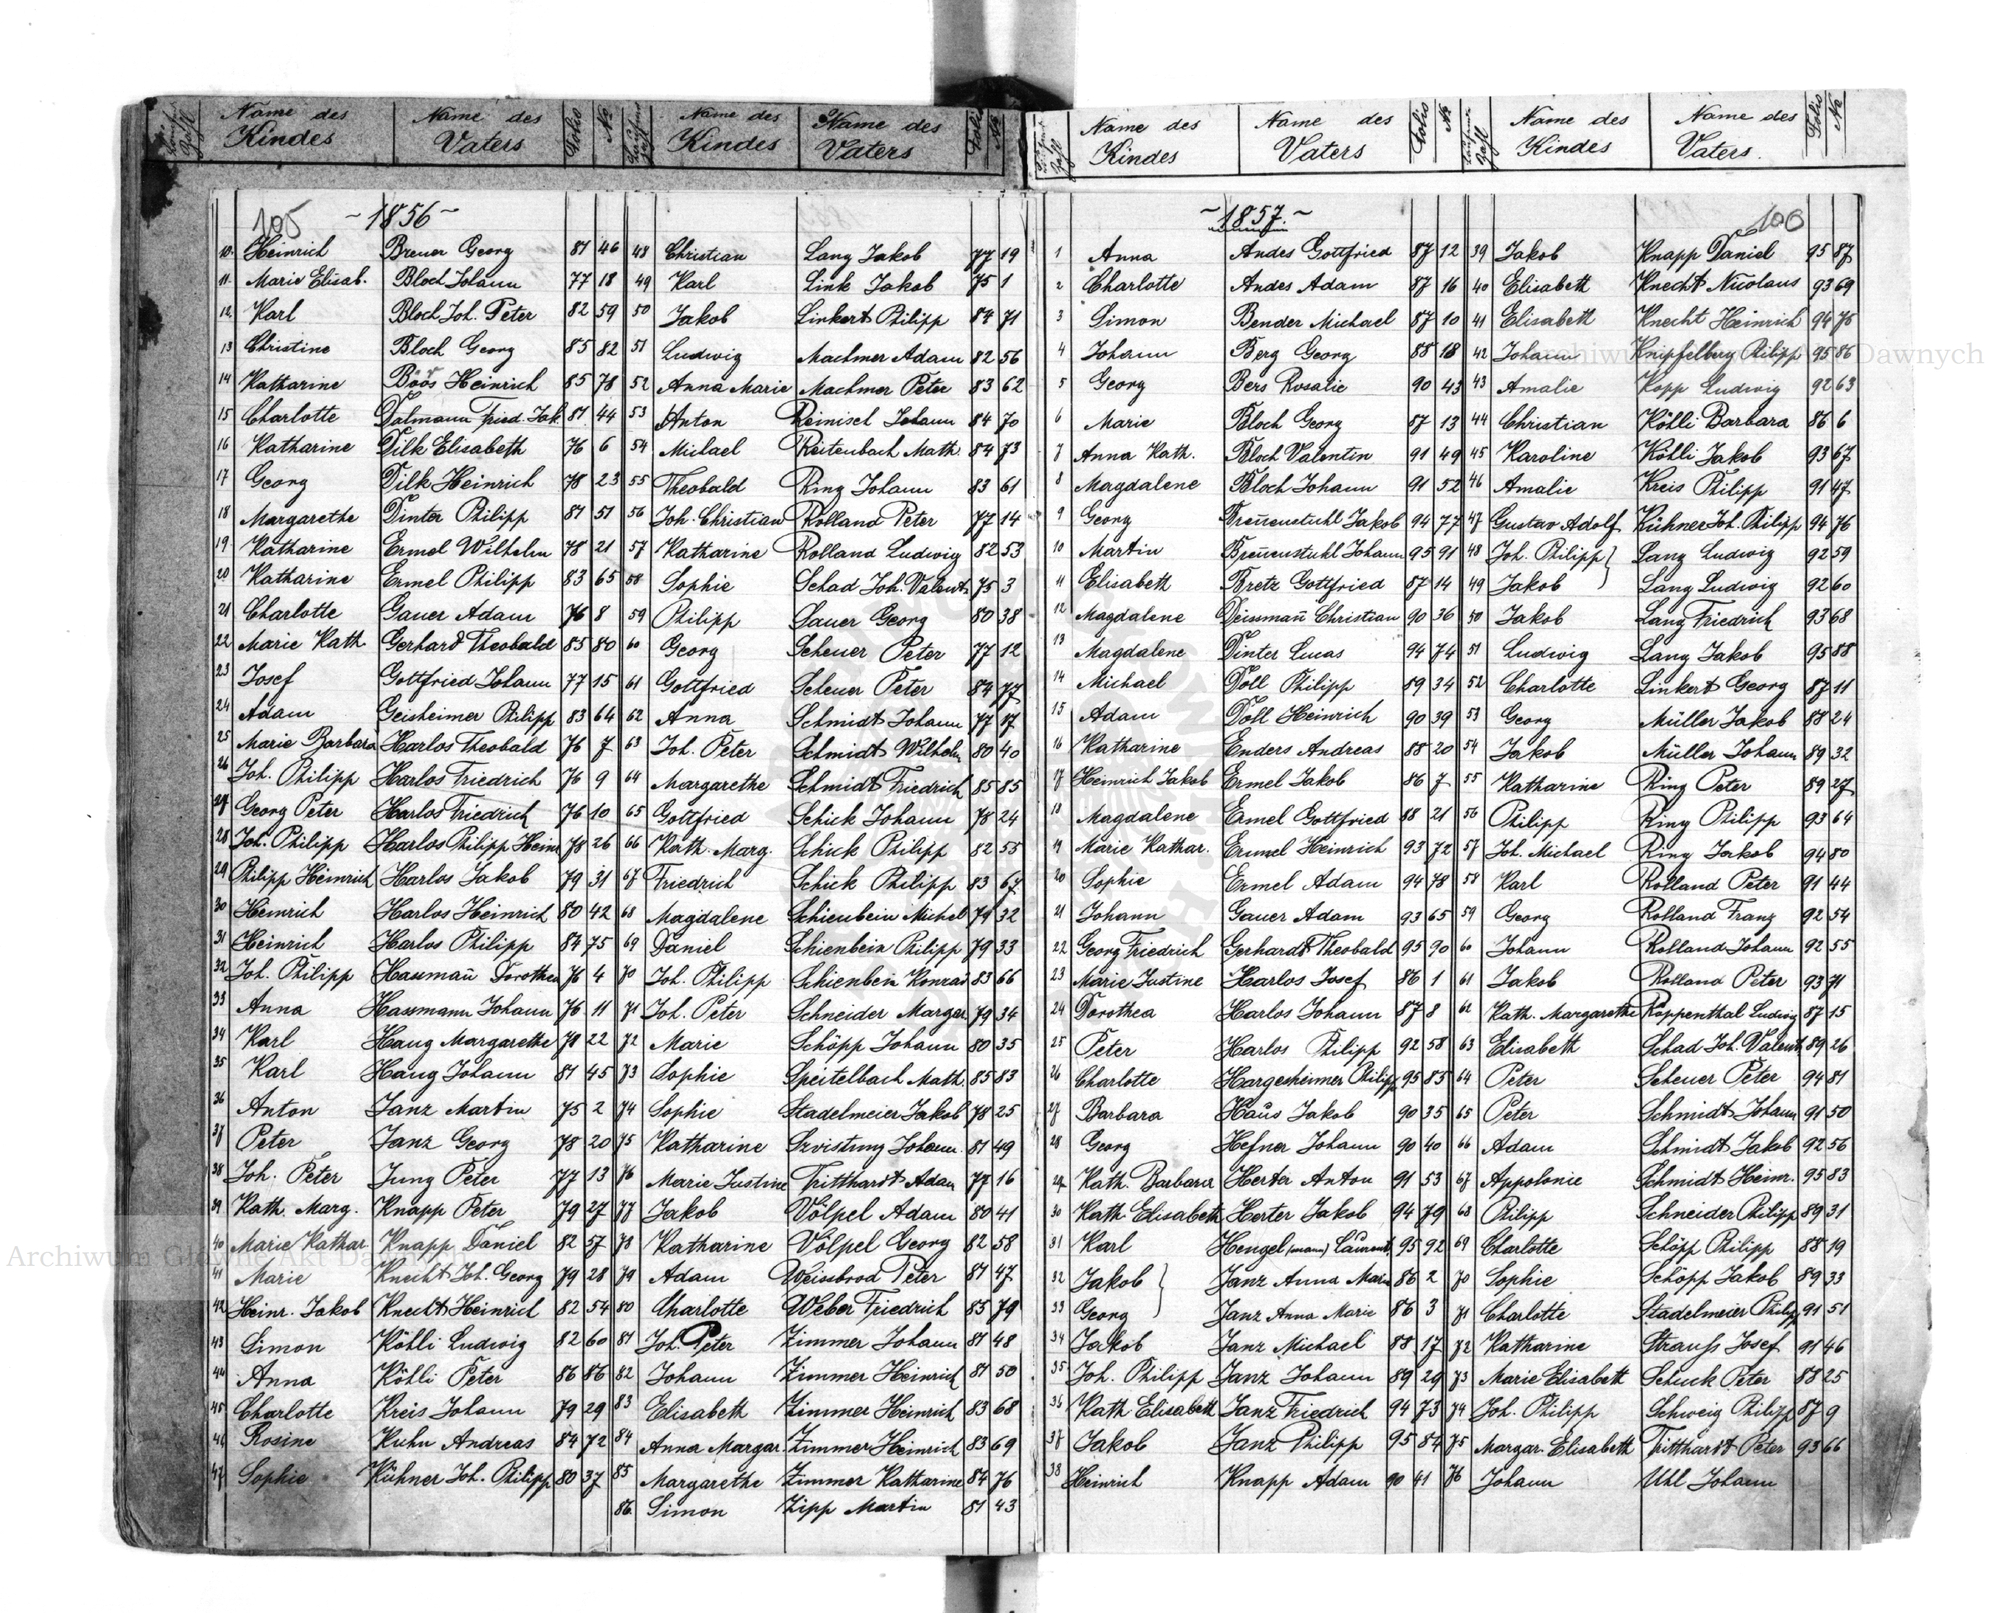 Laufende Zahl Name des Kindes Name des Vaters Folio № Laufende Zahl Name des Kindes Name des Vaters Folio №
105 ~1856~
10. Heinrich Breuer Georg 81 46 48 Christian Lang Jakob 77 19
11. Marie Elisab. Bloch Johann 77 18 49 Karl Link Jakob 75 1
12. Karl Bloch Joh. Peter 82 59 50 Jakob Linkert Philipp 84 71
13 Christine Bloch Georg 85 82 51 Ludwig Machmer Adam 82 56
14 Katharine Böös Heinrich 85 78 52 Anna Marie Machmer Peter 83 62
15 Charlotte Dalmann Fried. Jak. 81 44 53 Anton Reinisch Johann 84 70
16 Katharine Dilk Elisabeth 76 6 54 Michael Reitenbach Math. 84 73
17 Georg Dilk Heinrich 78 23 55 Theobald Ring Johann 83 61
18 Margarethe Dinter Philipp 81 51 56 Joh. Christian Rolland Peter 77 14
19 Katharine Ermel Wilhelm 78 21 57 Katharine Rolland Ludwig 82 53
20 Katharine Ermel Philipp 83 65 58 Sophie Schad Joh. Valent. 75 3
21 Charlotte Gauer Adam 76 8 59 Philipp Sauer Georg 80 38
22 Marie Kath Gerhard Theobald 85 80 60 Georg Scheuer Peter 77 12
23 Josef Gottfried Johann 77 15 61 Gottfried Scheuer Peter 84 77
24 Adam Geisheimer Philipp 83 64 62 Anna Schmidt Johann 77 17
25 Marie Barbara Harlos Theobald 76 7 63 Joh. Peter Schmidt Wilhelm 80 40
26 Joh. Philipp Harlos Friedrich 76 9 64 Margarethe Schmidt Friedrich 85 85
27 Georg Peter Harlos Friedrich 76 10 65 Gottfried Schick Johann 78 24
28 Joh. Philipp Harlos Philipp Hein 78 26 66 Kath. Marg. Schick Philipp 82 55
29 Philipp Heinrich Harlos Jakob 79 31 67 Friedrich Schick Philipp 83 67
30 Heinrich Harlos Heinrich 80 42 68 Magdalene Schienbein Michel 79 32
31 Heinrich Harlos Philipp 84 75 69 Daniel Schienbein Philipp 79 33
32 Joh. Philipp Hassmañ Dorothea 76 4 70 Joh. Philipp Schienbein Konrad 83 66
33 Anna Hassmann Johann 76 11 71 Joh. Peter Schneider Margar. 79 34
34 Karl Haug Margarethe 78 22 72 Marie Schöpp Johann 80 35
35 Karl Haug Johann 81 45 73 Sophie Speitelbach Math. 85 83
36 Anton Janz Martin 75 2 74 Sophie Stadelmeier Jakob 78 25
37 Peter Janz Georg 78 20 75 Katharine Szvistung Johann. 81 49
38 Joh. Peter Jung Peter 77 13 76 Marie Justine Tritthardt Adam 77 16
39 Kath. Marg. Knapp Peter 79 27 77 Jakob Völpel Adam 80 41
40 Marie Kathar Knapp Daniel 82 57 78 Katharine Völpel Georg 82 58
41 Marie Knecht Joh. Georg 79 28 79 Adam Weissbrod Peter 81 47
42 Heinr. Jakob Knecht Heinrich 82 54 80 Charlotte Weber Friedrich 85 79
43 Simon Köhli Ludwig 82 60 81 Joh. Peter Zimmer Johann 81 48
44 Anna Köhli Peter 86 86 82 Johann Zimmer Heinrich 81 50
45 Charlotte Kreis Johann 79 29 83 Elisabeth Zimmer Heinrich 83 68
46 Rosine Kuhn Andreas 84 72 84 Anna Margar. Zimmer Heinrich 83 69
47 Sophie Kühner Joh. Philipp 80 37 85 Margarethe Zimmer Katharine 84 76
86. Simon Zipp Martin 81 43
Laufende Zahl Name des Kindes Name des Vaters Folio № Laufende Zahl Name des Kindes Name des Vaters. Folio №
~1857.~ 106
1 Anna Andes Gottfried 87 12 39 Jakob Knapp Daniel 95 87
2 Charlotte Andes Adam 87 16 40 Elisabeth Knecht Nicolaus 93 69
3 Simon Bender Michael 87 10 41 Elisabeth Knecht Heinrich 94 75
4 Johann Berg Georg 88 18 42 Johann Knipfelberg Philipp 95 86
5 Georg Bers Rosalie 90 43 43 Amalie Kopp Ludwig 92 63
6 Marie Bloch Georg 87 13 44 Christian Kölli Barbara 86 6
7 Anna Kath. Bloch Valentin 91 49 45 Karoline Köhli Jakob 93 67
8 Magdalene Bloch Johann 91 52 46 Amalie Kreis Philipp 91 47
9 Georg Breñenstuhl Jakob 94 77 47 Gustav Adolf Kühner Joh. Philipp 94 76
10 Martin Breñenstuhl Johann 95 91 48 Joh. Philipp } Lang Ludwig 92 59
11 Elisabeth Bretz Gottfried 87 14 49 Jakob } Lang Ludwig 92 60
12 Magdalene Deissmañ Christian 90 36 50 Jakob Lang Friedrich 93 68
13 Magdalene Dinter Lucas 94 74 51 Ludwig Lang Jakob 95 88
14 Michael Doll Philipp 89 34 52 Charlotte Linkert Georg 87 11
15 Adam Doll Heinrich 90 39 53 Georg Müller Jakob 88 24
16 Katharine Enders Andreas 88 20 54 Jakob Müller Johann 89 32
17 Heinrich Jakob Ermel Jakob 86 7 55 Katharine Ring Peter 89 27
18 Magdalene Ermel Gottfried 88 21 56 Philipp Ring Philipp 93 64
19 Marie Kathar. Ermel Heinrich 93 72 57 Joh. Michael Ring Jakob 94 80
20 Sophie Ermel Adam 94 78 58 Karl Rolland Peter 91 44
21 Johann Gauer Adam 93 65 59 Georg Rolland Franz 92 54
22 Georg Friedrich Gerhardt Theobald 95 90 60 Johann Rolland Johann 92 55
23 Marie Justine Harlos Josef 86 1 61 Jakob Rolland Peter 93 71
24 Dorothea Harlos Johann 87 8 62 Kath. Margarethe Roppenthal Ludwig 87 15
25 Peter Harlos Philipp 92 58 63 Elisabeth Schad Joh. Valent 89 26
26 Charlotte Hargesheimer Philipp 95 85 64 Peter Scheuer Peter 94 81
27 Barbara Haus Jakob 90 35 65 Peter Schmidt Johann 91 50
28 Georg Hefner Johann 90 40 66 Adam Schmidt Jakob 92 56
29 Kath. Barbara Herter Anton 91 53 67 Appolonie Schmidt Heinr. 95 83
30 Kath Elisabeth Herter Jakob 94 79 68 Philipp Schneider Philipp 89 31
31 Karl Hengel (mann) Laurent 95 92 69 Charlotte Schöpp Philipp 88 19
32 Jakob } Janz Anna Marie 86 2 70 Sophie Schöpp Jakob 89 33
33 Georg } Janz Anna Marie 86 3 71 Charlotte Stadelmeier Philip 91 51
34 Jakob Janz Michael 88 17 72 Katharine Strauß Josef 91 46
35 Joh. Philipp Janz Johann 89 29 73 Marie Elisabeth Schuck Peter 88 25
36 Kath Elisabeth Janz Friedrich 94 73 74 Joh. Philipp Schweig Philipp 87 9
37 Jakob Janz Philipp 95 84 75 Margar. Elisabeth Tritthardt Peter 93 66
38 Heinrich Knapp Adam 90 41 76 Johann Uhl Johann
Archiwum Główne Akt Dawnych
Archiwum Główne Akt Dawnych